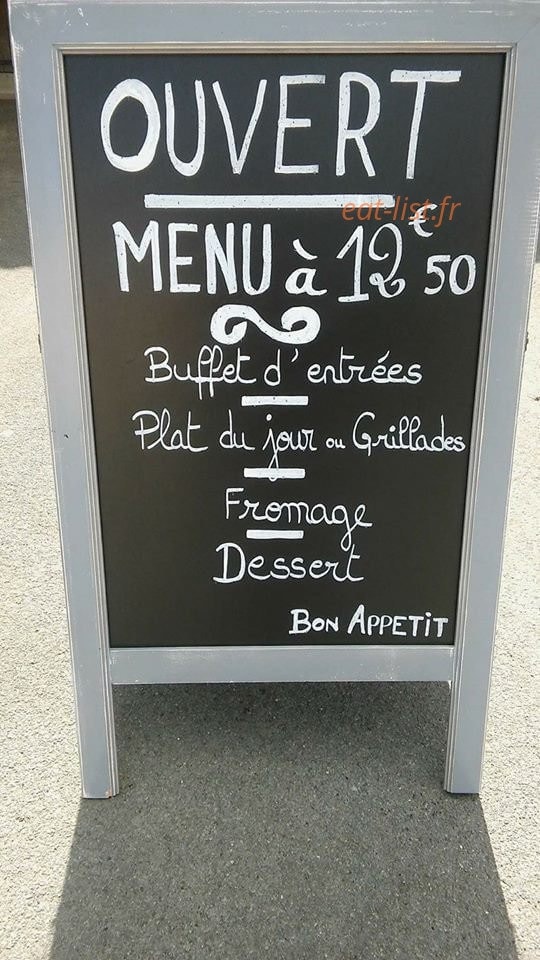 OUVERT
eat-list.fr
MENU à 12€50
Buffet d'entrées
Plat du jour ou Grillades
Fromage
Dessert
BON APPETIT